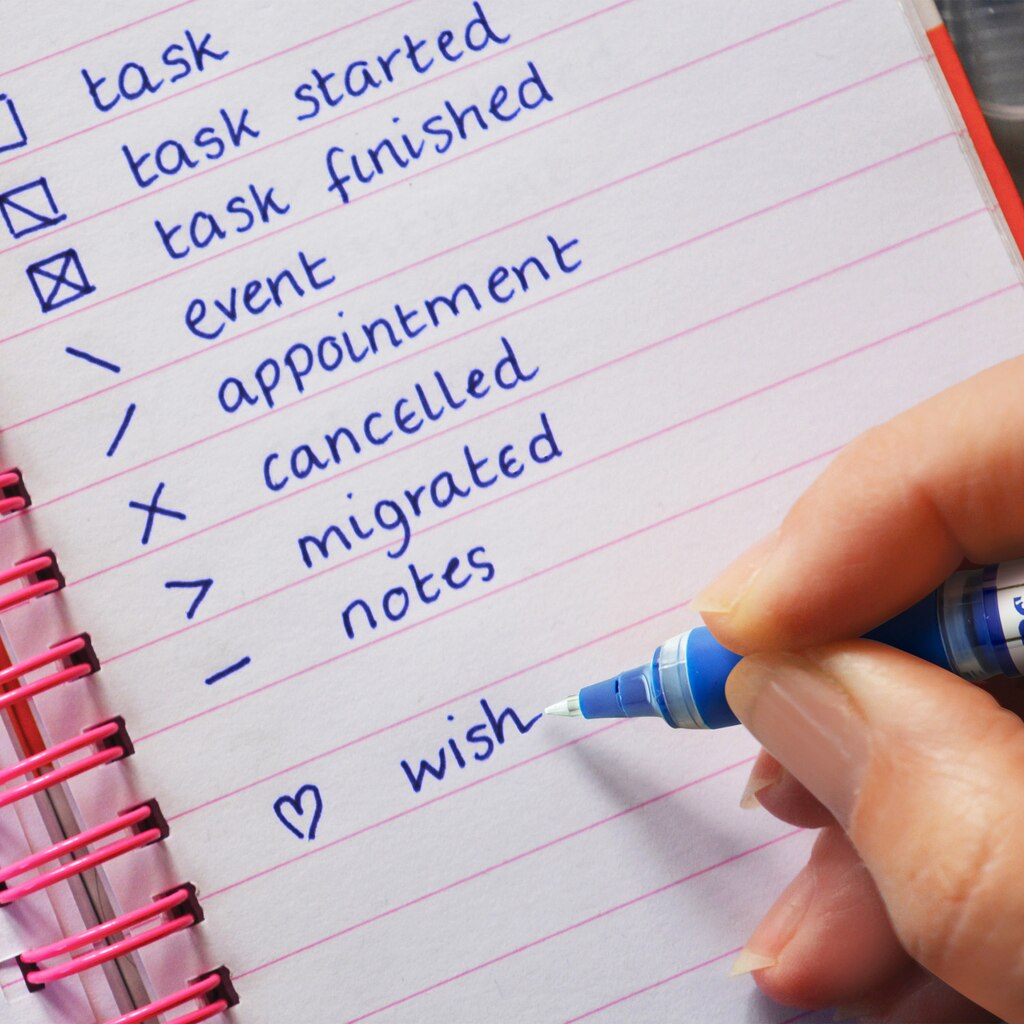 task
task started
task finished
event
appointment
cancelled
migrated
notes
wish